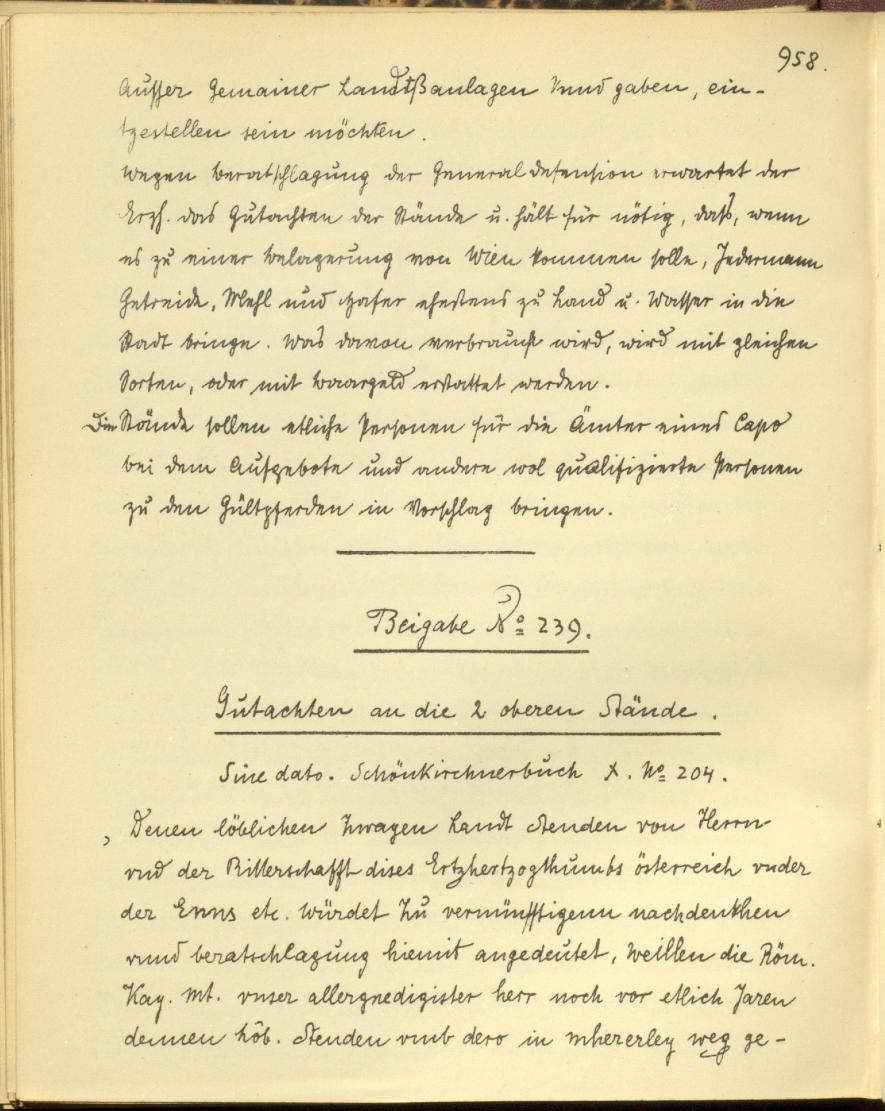 958.
Ausser Gemainer Landtßanlagen vnnd gaben, ein-
gestellen sein möchten.
Wegen beratschlagung der Generaldefension erwartet der
Erzh. das Gutachten der Stände u. hält für nötig, daß, wenn
es zu einer Belagerung von Wien kommen solle, Jedermann
Getreide, Mehl und Hafer ehestens zu Land u. Wasser in die
Stadt bringe. Was davon verbraucht wird, wird mit gleichen
Sorten, oder mit baargeld erstattet werden.
Die Stände sollen etliche Personen für die Ämter eines Capo
bei dem Aufgebote und andere wol qualifizierte Personen
zu den Gültpferden in Vorschlag bringen.
Beigabe No 239.
Gutachten an die 2 oberen Stände.
Sine dato. Schönkirchnerbuch X. No 204.
, Denen löblichen Zwayen Landt Stenden von Herrn
vnd der Ritterschafft dises Ertzhertzogthumbs österreich vnder
der Enns etc. würdet Zu vernünfftigenn nachdenkhen
vnnd beratschlagung hiemit angedeutet, Weillen die Röm.
Kay. Mt. vnser allergnedigister herr noch vor etlich Jaren
dennen löb. Stenden vmb dero in mhererley weg ge-